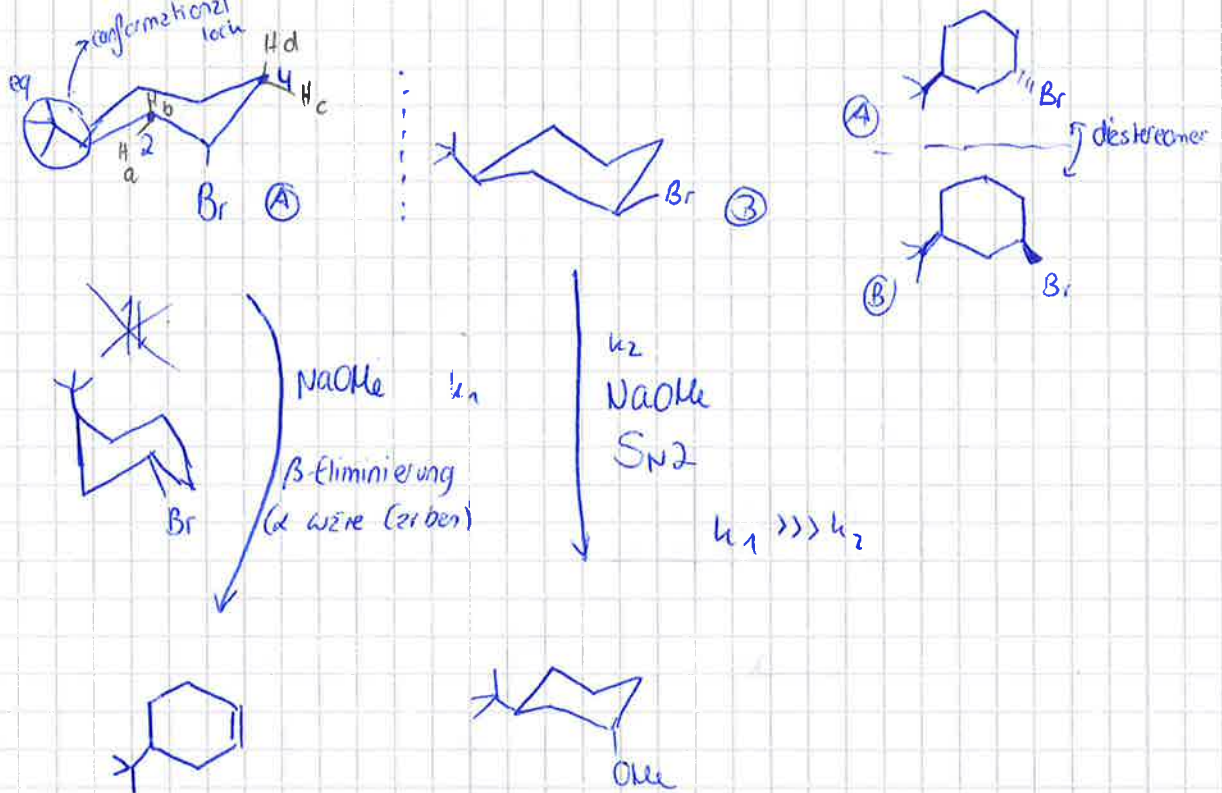 conformational
lock
eq
H d
4
H c
H b
H a
2
Br A
Br B
A
Br
diestereomer
B
Br
Br
NaOMe k1
β-Eliminierung
(α wäre Carben)
k2
NaOMe
SN2
k1 >>> k2
OMe